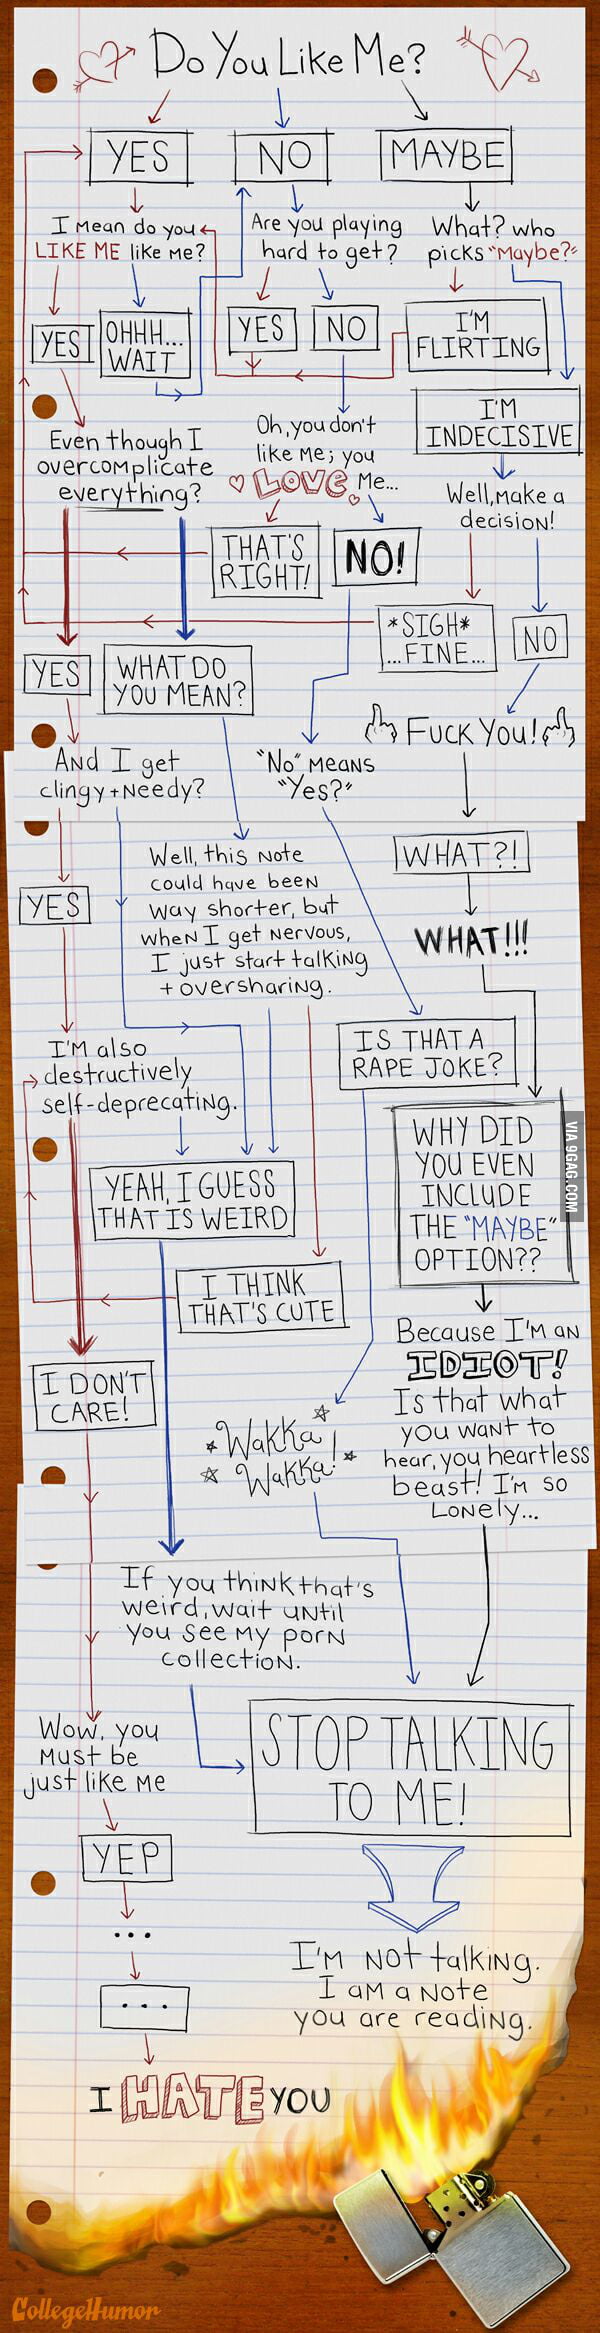 Do You Like Me?
YES
NO
MAYBE
I mean do you
LIKE ME like me?
Are you playing
hard to get?
What? who
picks "Maybe?"
YES
OHHH...
WAIT
YES
NO
I'M
FLIRTING
I'M
INDECISIVE
Even though I
overcomplicate
everything?
Oh, you don't
like me; you
LOVE me...
Well, make a
decision!
THAT'S
RIGHT!
NO!
*SIGH*
...FINE...
NO
YES
WHAT DO
YOU MEAN?
Fuck You!
And I get
clingy + needy?
"No" means
"Yes?"
WHAT?!
Well, this note
could have been
way shorter, but
when I get nervous,
I just start talking
+ oversharing.
YES
WHAT!!!
I'm also
destructively
self-deprecating.
IS THAT A
RAPE JOKE?
WHY DID
YOU EVEN
INCLUDE
THE "MAYBE"
OPTION??
VIA 9GAG.COM
YEAH, I GUESS
THAT IS WEIRD
I THINK
THAT'S CUTE
Because I'm an
IDIOT!
Is that what
you want to
hear, you heartless
beast! I'm so
lonely...
I DON'T
CARE!
Wakka
Wakka!
If you think that's
weird, wait until
you see my porn
collection.
STOP TALKING
TO ME!
Wow, you
must be
just like me
YEP
...
...
I'm not talking.
I am a note
you are reading.
I HATE YOU
CollegeHumor